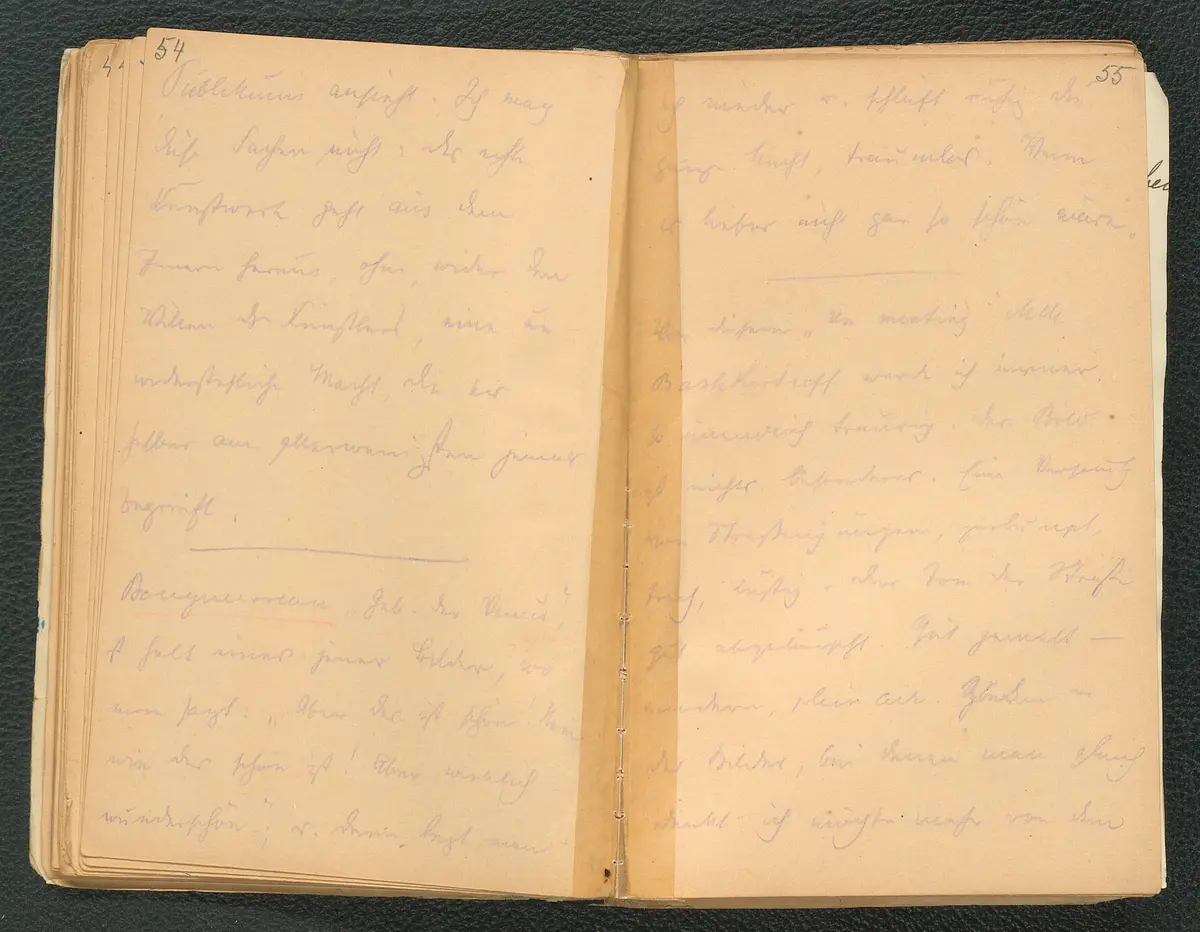 54
Publikums ansieht. Ich mag
diese Sachen nicht: das echte
Kunstwerk geht aus dem
Innern heraus, ohne, wider den
Willen des Künstlers, eine un-
widerstehliche Macht, die er
selber am allerwenigsten jemals
begreift.
Bouguereau „Geb. der Venus",
ist halt eines jener Bilder, wo
man sagt: „Aber das ist schön! Nein
wie das schön ist! Aber wirklich
wunderschön"; u. dann legt man
55
sich nieder u. schläft ruhig die
ganze Nacht, traumlos. Wenn
es lieber nicht gar so schön wäre.
Vor diesem „Un meeting" Mlle
Bashkirtseff werde ich immer
so unendlich traurig. Das Bild
ist nichts besonderes. Eine
von Straßenjungen,
frech, lustig. Der Ton der Straße
gut abgelauscht. Gut gemalt —
modern, plein air.
der Bilder, bei denen man gleich
denkt ich möchte mehr von dem